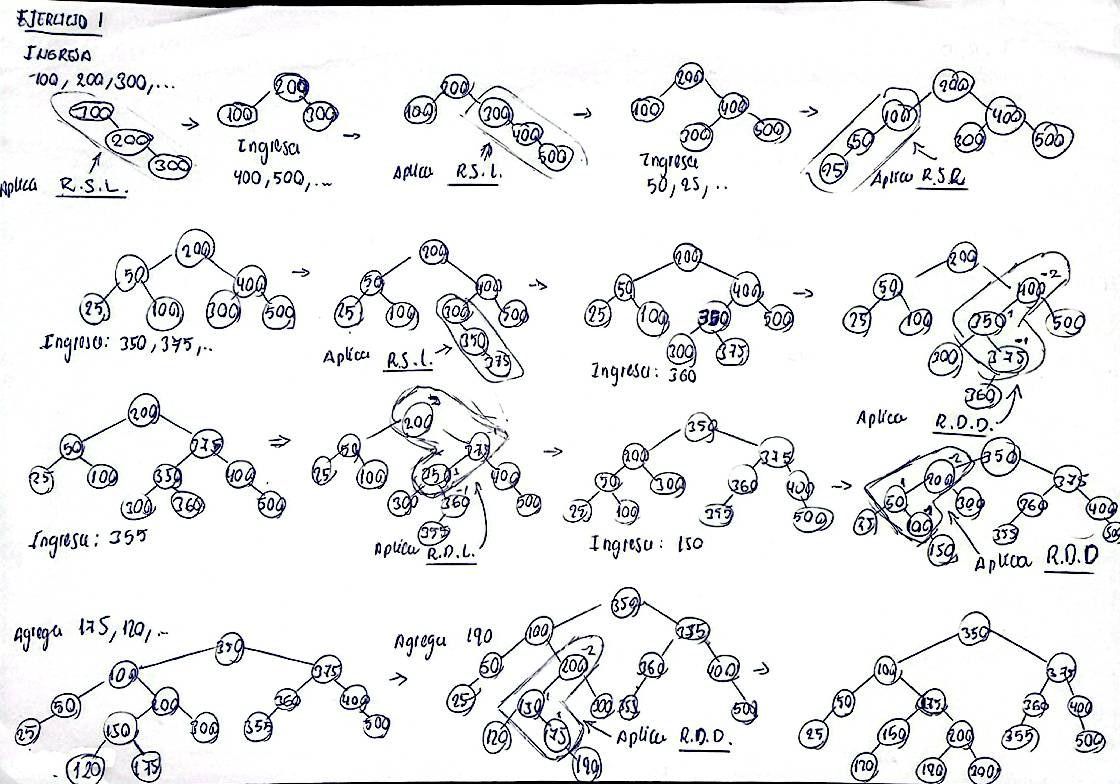 EJERCICIO 1
INGRESA
100, 200, 300, ...
100
200
300
Aplica R.S.L.
200
100 300
Ingresa
400, 500, ...
200
100 300
400
500
Aplica R.S.L.
200
100 400
300 500
Ingresa
50, 25, ..
200
100 400
50 300 500
25
Aplica R.S.R
200
50 400
25 100 300 500
Ingresa: 350, 375, ..
200
50 400
25 100 300 500
350
375
Aplica R.S.L.
200
50 400
25 100 350 500
300 375
Ingresa: 360
200
50 400 -2
25 100 350 1 500
300 375 -1
360
Aplica R.D.D.
200
50 375
25 100 350 400
300 360 500
Ingresa: 355
200
50 375
25 100 350 1 400
300 360 -1 500
355
Aplica R.D.L.
350
200 375
50 300 360 400
25 100 355 500
Ingresa: 150
350
200 -2 375
50 1 300 360 400
25 100 1 355 500
150
Aplica R.D.D
Agrega 175, 120, ..
350
100 375
50 200 360 400
25 150 300 355 500
120 175
Agrega 190
350
100 375
50 200 -2 360 400
25 150 1 300 355 500
120 175 1
190
Aplica R.D.D.
350
100 375
50 175 360 400
25 150 200 355 500
120 190 300